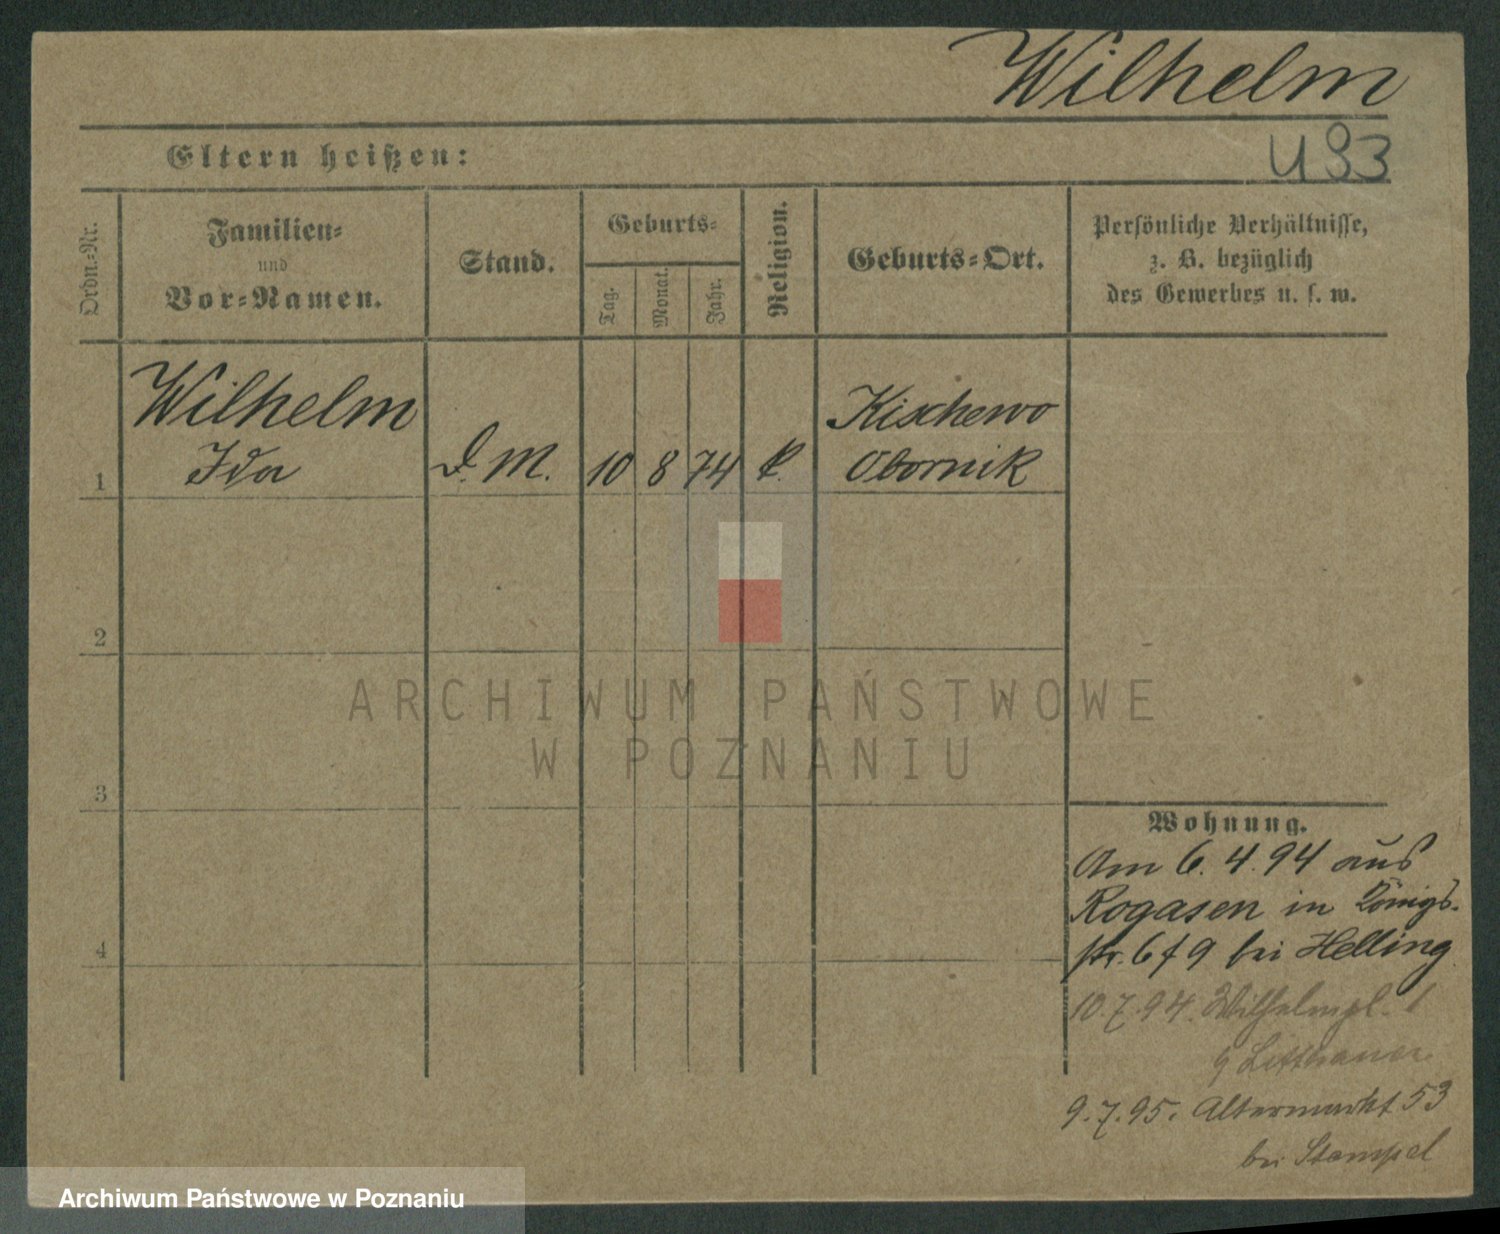 Wilhelm
Eltern heißen:
U 93
Ordn.-Nr.
Familien-
und
Vor-Namen.
Stand.
Geburts-
Tag.
Monat.
Jahr.
Religion.
Geburts-Ort.
Persönliche Verhältnisse,
z. B. bezüglich
des Gewerbes u. s. w.
Wilhelm
Kischewo
1 Ida D. M. 10 8 74 k. Obornik
2
ARCHIWUM PAŃSTWOWE
W POZNANIU
3
Wohnung.
Am 6. 4. 94 aus
Rogasen in Königs-
4
str. 6/9 bei Helling
10.7.94. Wilhelmpl. 1
Litthauer
9.7.95. Altermarkt 53
bei Stempel
Archiwum Państwowe w Poznaniu